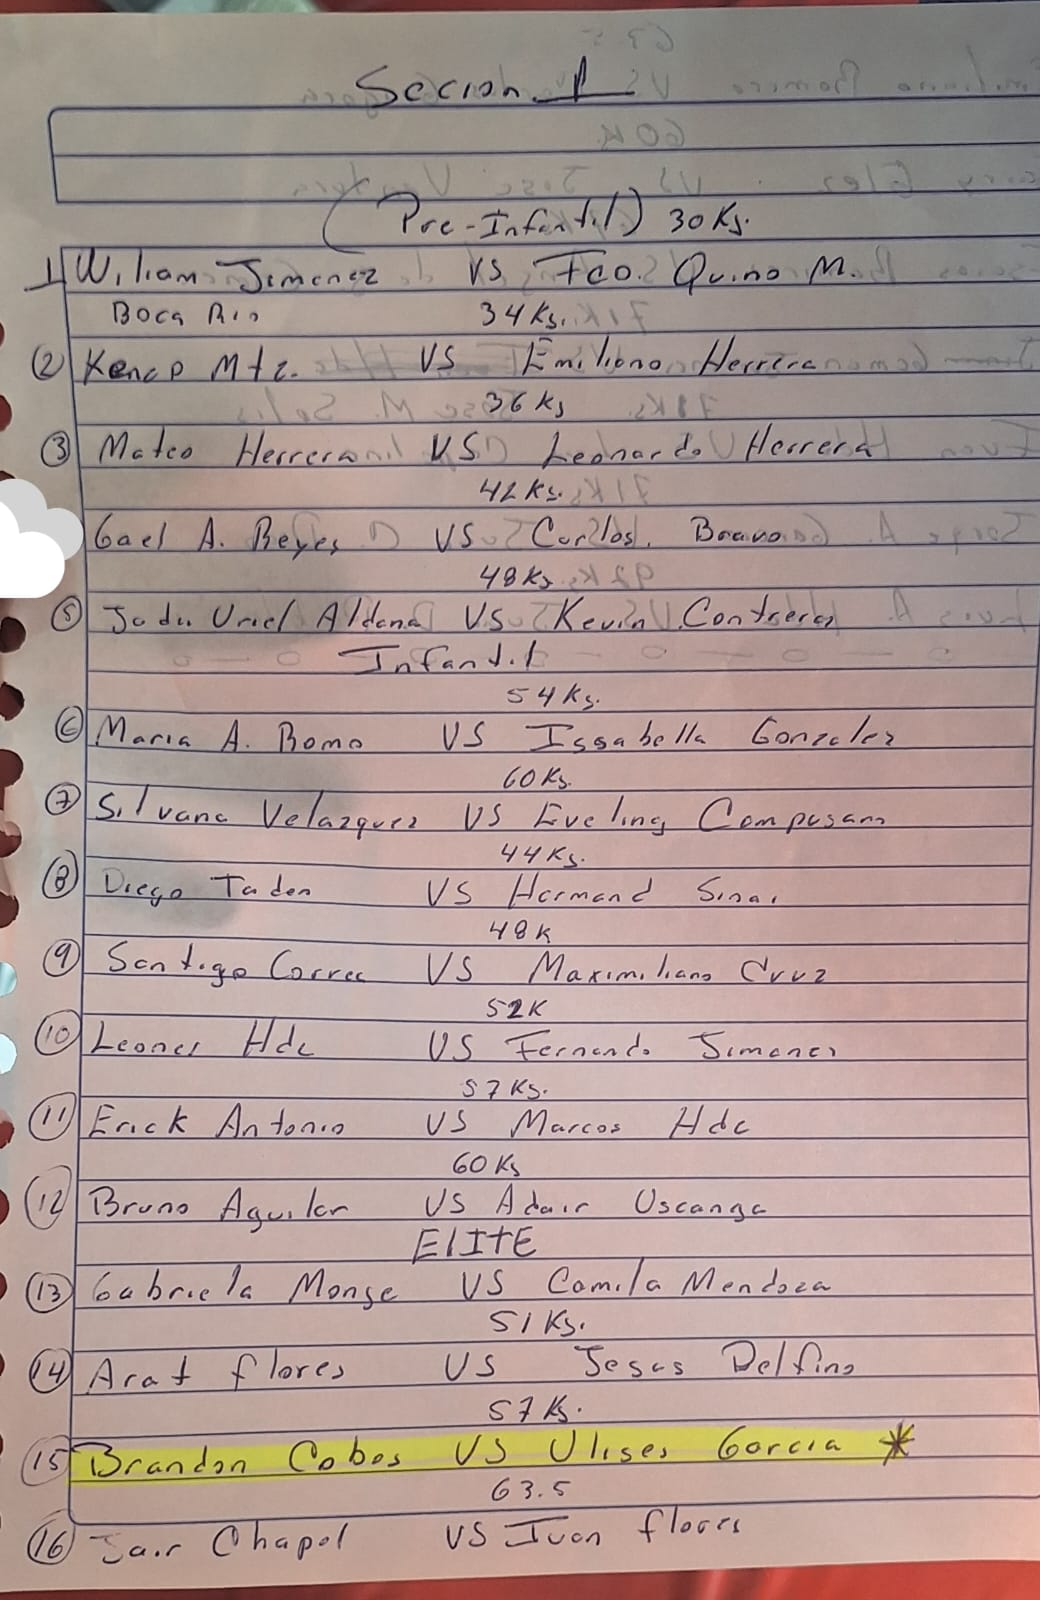 Secion 1
(Pre-Infantil) 30 Ks.
1 Wiliam Jimenez VS Fco. Quino M.
Boca Rio 34 Ks.
2 Mtz. VS Emiliano Herrera
36 Ks
3 Mateo Herrera VS Leonardo Herrera
42 Ks.
Gael A. Reyes VS Carlos. Bravo
48 Ks
5 Uriel Aldana VS Kevin Contreras
Infantil
54 Ks.
6 Maria A. Romo VS Issabella Gonzalez
60 Ks.
7 Silvana Velazquez VS Eveling Campusano
44 Ks.
8 Diego Taden VS Hermand Sinai
48 K
9 Santigo Correa VS Maximiliano Cruz
52 K
10 Leones Hdc VS Fernando Jimenes
57 Ks.
11 Erick Antonio VS Marcos Hdc
60 Ks
12 Bruno Aguilar VS Adair Uscanga
ElItE
13 Gabriela Monge VS Camila Mendoza
51 Ks.
14 Arat flores VS Jesus Delfino
57 Ks.
15 Brandon Cobos VS Ulises Garcia *
63.5
16 Jair Chapol VS Ivan flores